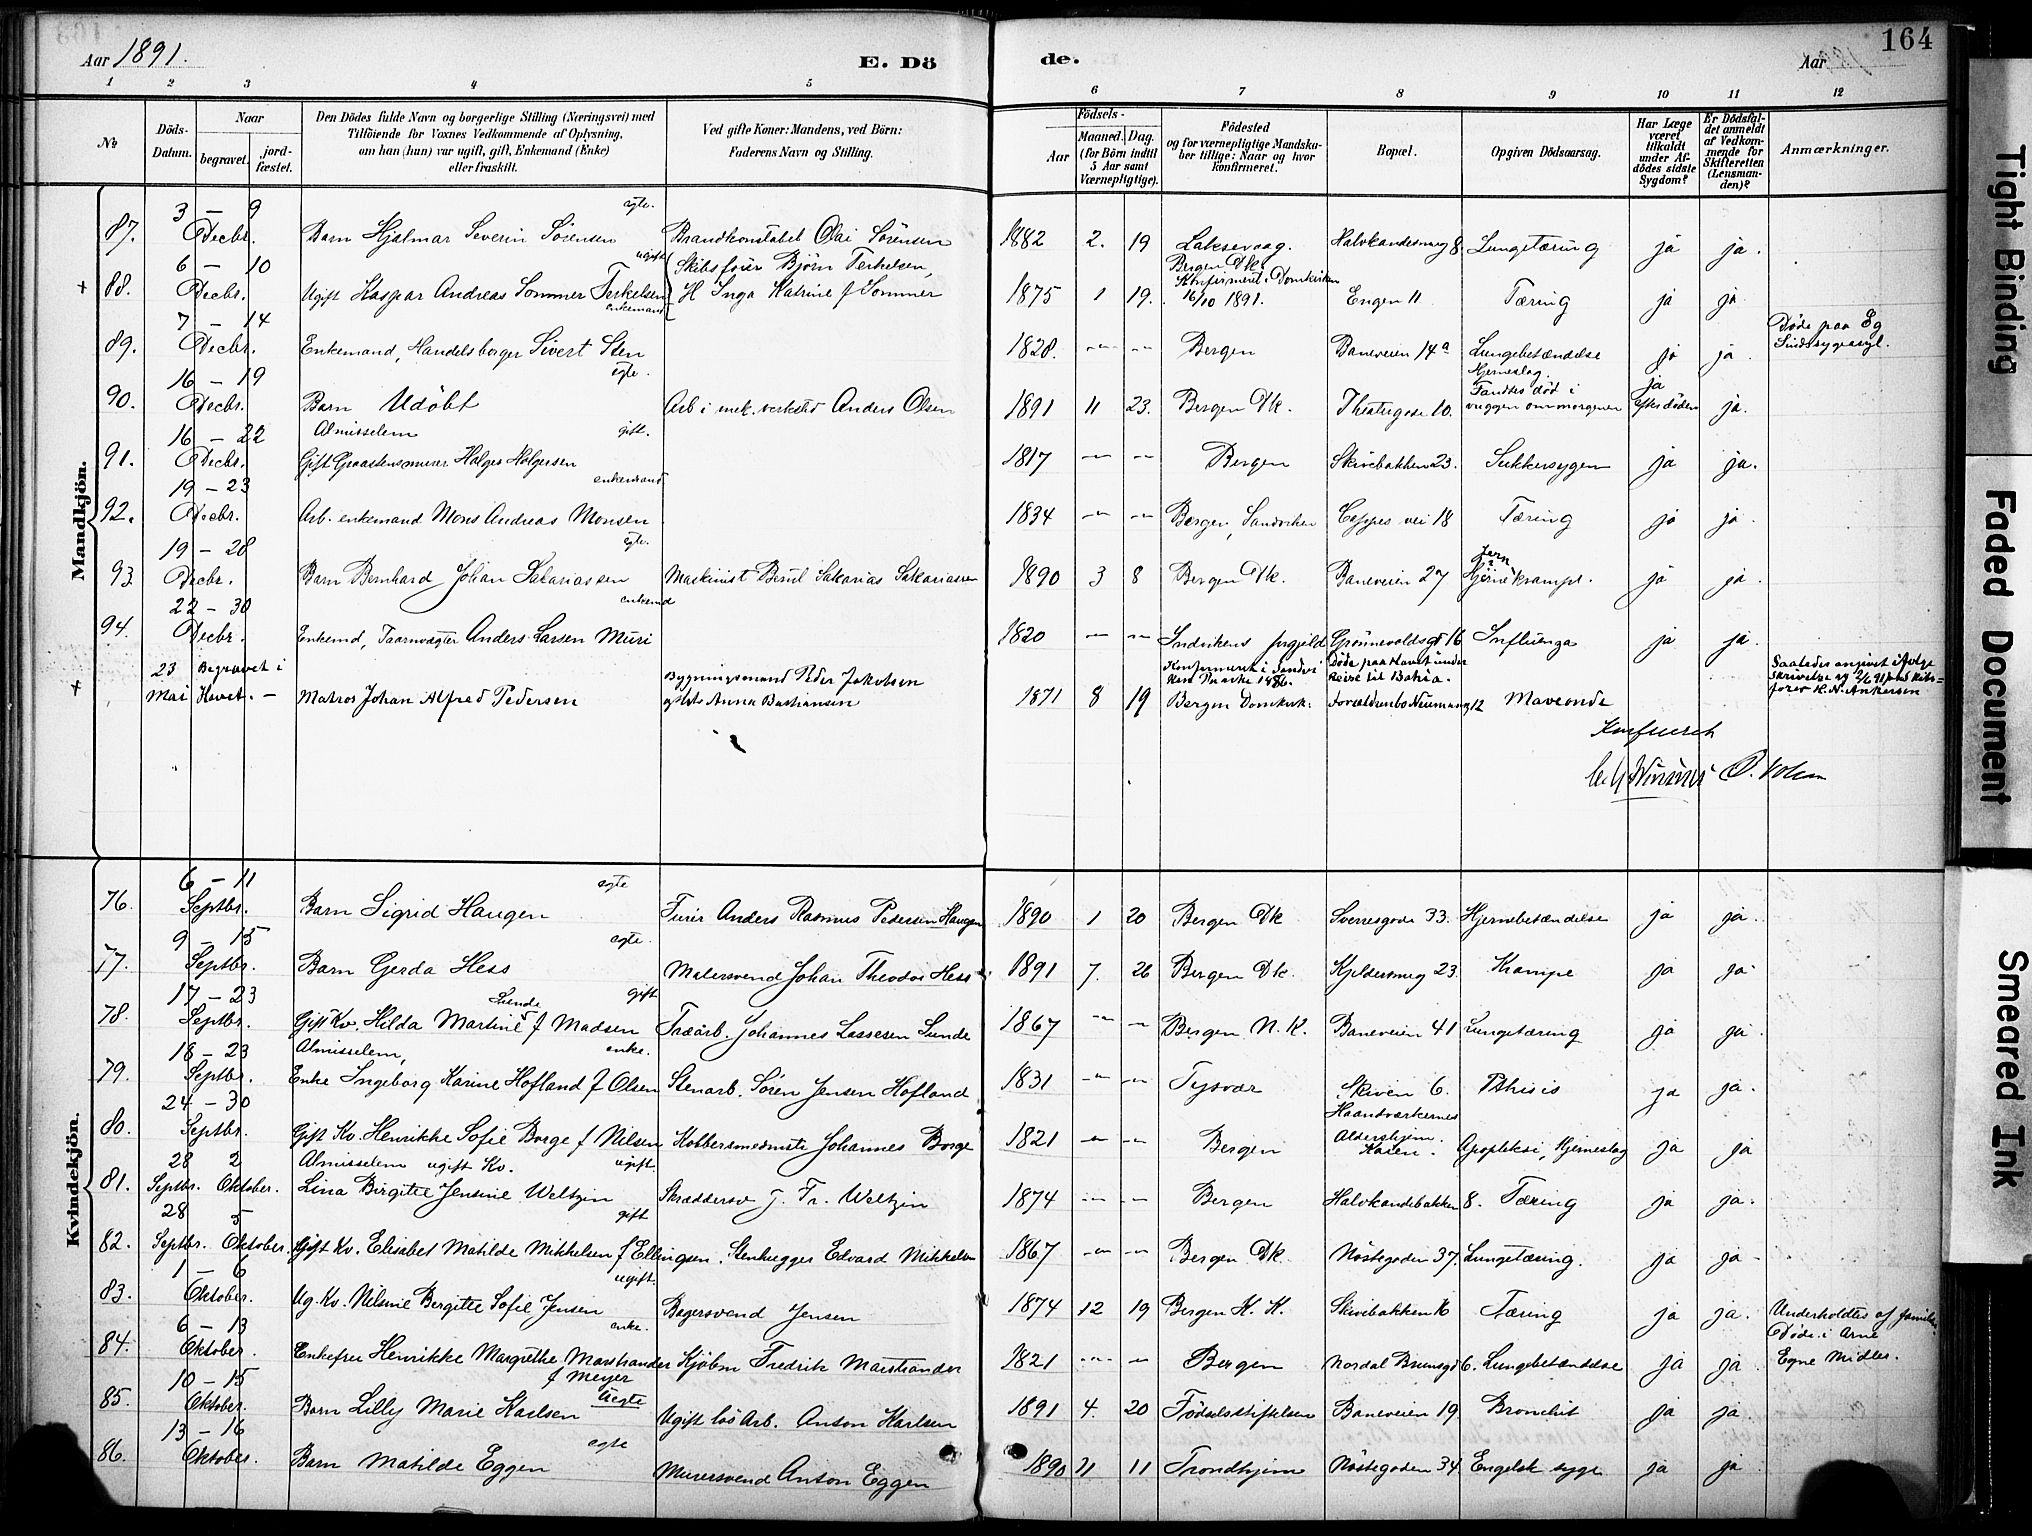 Aar 1891. E. Dö de. Aar 164
1 2 3 4 5 6 7 8 9 10 11 12
No
Döds-Datum.
Naar begravet. jordfæstet.
Den Dödes fulde Navn og borgerlige Stilling (Næringsvei) med Tilföiende for Voxnes Vedkommende af Oplysning, om han (hun) var ugift, gift, Enkemand (Enke) eller fraskilt.
Ved gifte Koner: Mandens, ved Börn: Faderens Navn og Stilling.
Födsels-
Aar Maaned. Dag. (for Börn indtil 5 Aar samt Værnepligtige).
Födested og for værnepligtige Mandskaber tillige: Naar og hvor konfirmeret.
Bopæl.
Opgiven Dödsaarsag.
Har Læge været tilkaldt under Afdödes sidste Sygdom?
Er Dödsfaldet anmeldt af Vedkommende for Skifteretten (Lensmanden)?
Anmærkninger.
Mandkjön.
87. 3 – 9 Decbr. Barn Hjalmar Severin Sörensen egte. Brandkonstabel Olai Sörensen 1882 2. 19 Laksevaag. Halvkandesmug 8. Lungetæring ja ja.
+ 88. 6 – 10 Decbr. Ugift Kaspar Andreas Sommer Terkelsen ugift Skibsfører Bjørn Terkelsen, H Inga Katrine f Sommer 1875 1 19. Bergen Dk. Konfirmeret i Domkirken 16/10 1891. Engen 11 Tæring ja ja
89. 7 – 14 Decbr. Enkemand, Handelsborger Sivert Sten enkemand 1828. — — Bergen Baneveien 14a Lungebetændelse ja ja. Døde paa Eg Sindssygeasyl.
90. 16 – 19 Decbr. Barn Udöbt egte. Arb i mek. verksted Anders Olsen 1891 11 23. Bergen Dk. Theatergade 10. Hjerneslag. Fandtes död i vuggen om morgenen ja efter döden ja.
91. 16 – 22 Decbr. Almisselem Gift Graastensmurer Holger Holgersen gift. 1817 — — Bergen Skivebakken 23. Sukkersygen ja ja.
92. 19 – 23 Decbr. Arb. enkemand Mons Andreas Monsen enkemand 1834 — — Bergen, Sandviken Ceppes vei 18 Tæring ja ja.
93. 19 – 28 Decbr. Barn Bernhard Johan Sakariassen egte. Maskinist Berul Sakarias Sakariassen 1890 3 8 Bergen Dk. Baneveien 27 Hjernekrampe. ja ja.
94. 22 – 30 Decbr. Enkemd, Taarnvægter Anders Larsen Muri enkemd 1820 — — Indvikens Prgjeld Grønnevoldsgd 16 Influenza ja ja.
+ 23 Mai Begravet i Havet. – Matros Johan Alfred Pedersen Bygningsmand Peder Jakobsen og Anna Bastiansen 1871 8 19 Konfirmeret i Sandviken Bergen Domkirk: Døde paa Havet under Reise til Bahia. Forældrenbo Neumansg 12 Maveonde Saaledes angivet i følge skrivelse af 2/6 91 fra skibsfører H.N. Ankersen
Konfereret
Kvindekjön.
76. 6 – 11 Septbr. Barn Sigrid Haugen egte Furir Anders Rasmus Pedersen Haugen 1890 1 20 Bergen Dk Sverresgade 33. Hjernebetændelse ja ja.
77. 9 – 15 Septbr. Barn Gerda Hess egte. Malersvend Johan Theodor Hess 1891 7. 26 Bergen Dk. Kjeldersmug 23. Krampe ja ja
78. 17 – 23 Septbr. Gift Kv. Hilda Martine Lunde f Madsen gift Træarb. Johannes Lassesen Lunde 1867 — — Bergen N. K. Baneveien 41 Lungetæring ja ja.
79. 18 – 23 Septbr. Almisselem, Enke Ingeborg Karine Hofland f Olsen enke. Stenarb. Sören Jensen Hofland 1831 — — Tysvær Skiven 6. Pthisis ja ja.
80. 24 – 30 Septbr. Gift Kv. Henrikke Sofie Borge f Nilsen Kobbersmedmstr Johannes Borge 1821 — — Bergen Haandværkernes Aldershjem. Kalfaret. Apopleksi, Hjerneslag ja ja
81. 28 Septbr. 2 Oktober. Almisselem ugift Kv. Lina Birgitte Jensine Weltzin ugift Skræddersv J. Fr. Weltzin 1874 — — Bergen Halvkandebakken 8. Tæring ja ja.
82. 28 Septbr. 5 Oktober. Gift Kv. Elisabet Matilde Mikkelsen f Ellingsen. gift Stenhugger Edvard Mikkelsen 1867 — — Bergen Dk. Nöstegaden 37. Lungetæring. ja ja
83. 1 – 6 Oktober. Ug. Kv. Nilsine Bergitte Sofie Jensen ugift. Bagersvend Jensen 1874 12 19 Bergen K. K. Skivebakken 16 Tæring ja ja. Underholdtes af familie.
84. 6 – 13 Oktober. Enkefru Henrikke Margrethe Marstrander f Meyer enke. Kjöbm Fredrik Marstrander 1821 — — Bergen Nordal Brunsgd 6. Lungebetændelse ja ja. Döde i Arne Egne Midler.
85. 10 – 15 Oktober. Barn Lilly Marie Karlsen Uegte Ugift lös Arb. Anton Karlsen 1891 4. 20 Födselsstiftelsen Baneveien 19. Bronchit ja ja
86. 13 – 16 Oktober. Barn Matilde Eggen egte Murersvend Anton Eggen 1890 11 11 Trondhjem Nöstegaden 34 Engelsk syge ja ja
Tight Binding
Faded Document
Smeared Ink